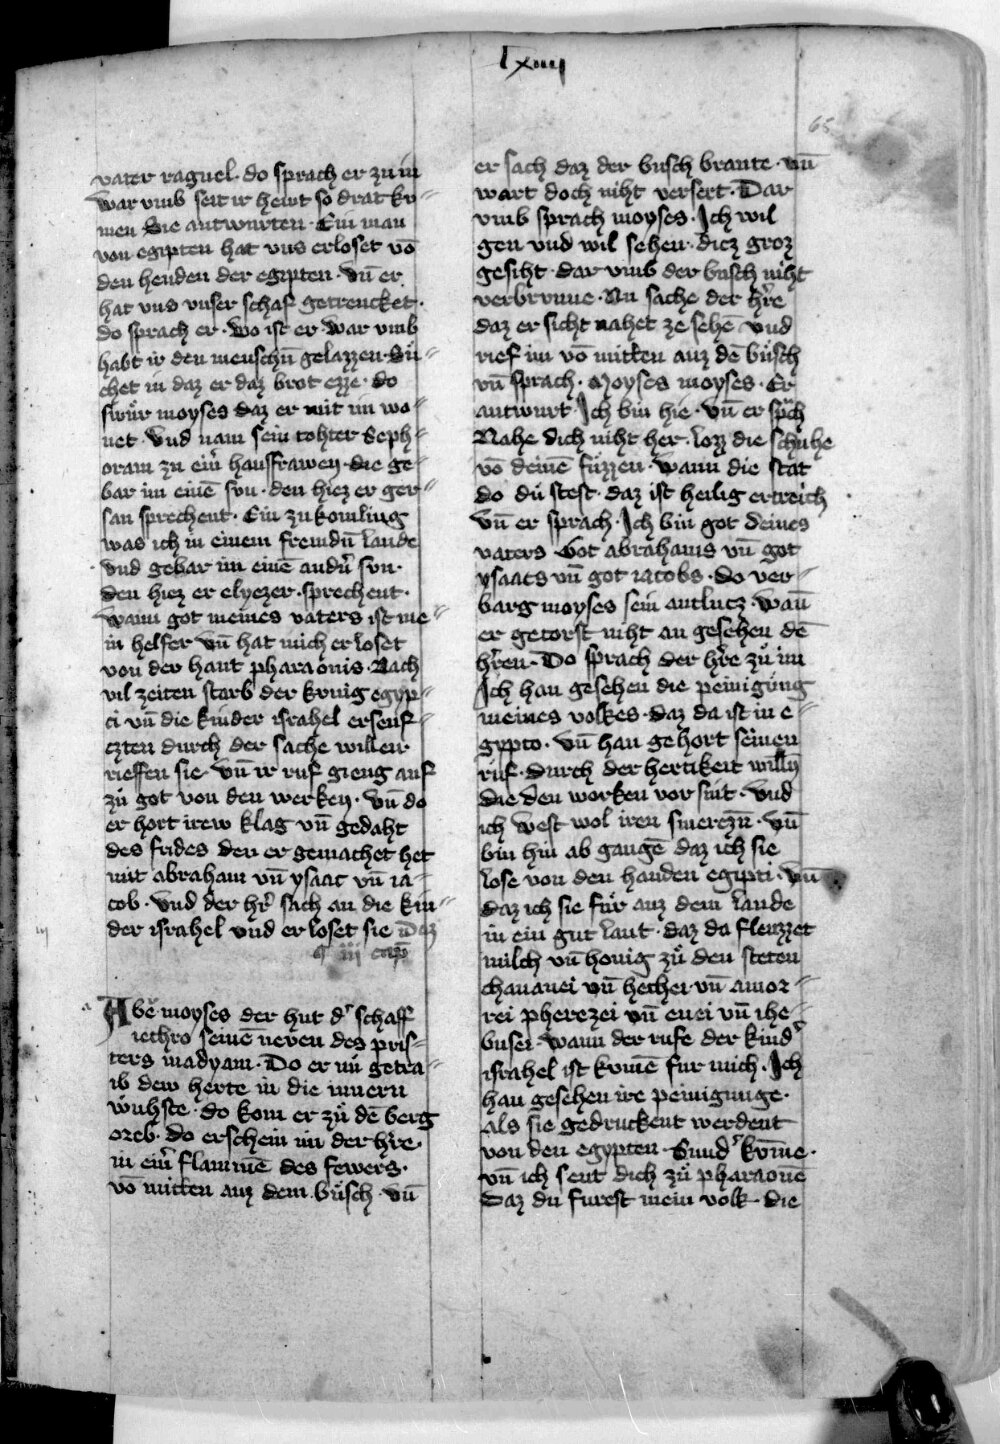 lxiiij
65
vater raguel · do sprach er zu in
war vmb seit ir hewt so drat ku⸗
men Sie antwurten · Ein man
von egipten hat vns erloset vō
den henden der egipten · vn̄ er
hat vns vnser schaf getrencket ·
do sprach er · wo ist er war vmb
habt ir den menschn̄ gelazzen · Rů⸗
chet in daz er daz brot ezze · do
swůr moyses daz er mit im wo⸗
net · vnd nam sein tohter Seph⸗
oram zu eim̄ hausfrawen · die ge⸗
bar im einē svn · den hiez er ger⸗
san sprechent · Ein zu komling
was ich in einem fremdn̄ lande
vnd gebar im einē andn̄ svn ·
den hiez er elyezer · sprechent ·
wann got meines vaters ist me⸗
in helfer vn̄ hat mich erloset
von der hant pharaonis · Nach
vil zeiten starb der kvnig egyp⸗
ti vn̄ die kinder israhel erseuf⸗
czten durch der sache willen
rieffen sie · vn̄ ir ruf gieng auf
zů got von den werken · vn̄ do
er hort irew klag vn̄ gedaht
des frides den er gemachet het
mit abraham vn̄ ysaac vn̄ ia⸗
cob · vnd der hr̄ sach an die kin⸗
der israhel vnd er loset sie Daz
¶ iij cap̄
Abē moyses der hut d' schaff
iethro seinē neven des pris⸗
ters madyam · Do er nů getra⸗
ib dew herte in die innern
wůhste · do kom er zů dē berg
oreb · do erschein im der hr̄e ·
in eim̄ flammē des fewers ·
vō mitten auz dem bůsch · vn̄
er sach daz der busch brante · vn̄
wart doch niht versert · Dar
vmb sprach moyses · Ich wil
gen vnd wil sehen · dicz groz
gesiht · dar vmb der busch niht
verbrvnne · Nu sache der hr̄e
daz er sicht nahet ze sehē vnd
rief im vō mitten auz dē bůsch
vn̄ sprach · Moyses moyses · Er
antwurt · Ich bin hie · vn̄ er spͣch
Nahe dich niht her · loz die schuhe
vō deinē fůzzen · wann die stat
do dů stest · daz ist heilig ertreich
vn̄ er sprach · Ich bin got deines
vaters Got abrahams vn̄ got
ysaacs vn̄ got iacobs · do ver⸗
barg moyses sein antlucz · wan̄
er getorst niht an gesehen dē
hr̄en · Do sprach der hr̄e zů im
Ich han gesehen die peinigůng
meines volkes · daz da ist in e⸗
gypto · vn̄ han gehort seinen
růf · durch der hertikeit willn̄
die den worken vor sint · vnd
ich west wol iren smerczn̄ · vn̄
bin hin ab gangē daz ich sie
lose von den handen egipti · vn̄
daz ich sie fůr auz dem lande
in ein gut lant · daz da fleuzzet
milch vn̄ honig zů den steten
chananei vn̄ hethei vn̄ amor⸗
rei pherezei vn̄ euei vn̄ ihe⸗
busei · wann der rufe der kind'
israhel ist kvmē fur mich · Ich
han gesehen ire peinigunge ·
als sie gedruckent werdent
von den egypten · Sund' kvm̄e ·
vn̄ ich sent dich zů pharaonē
Daz du furest mein volk · die